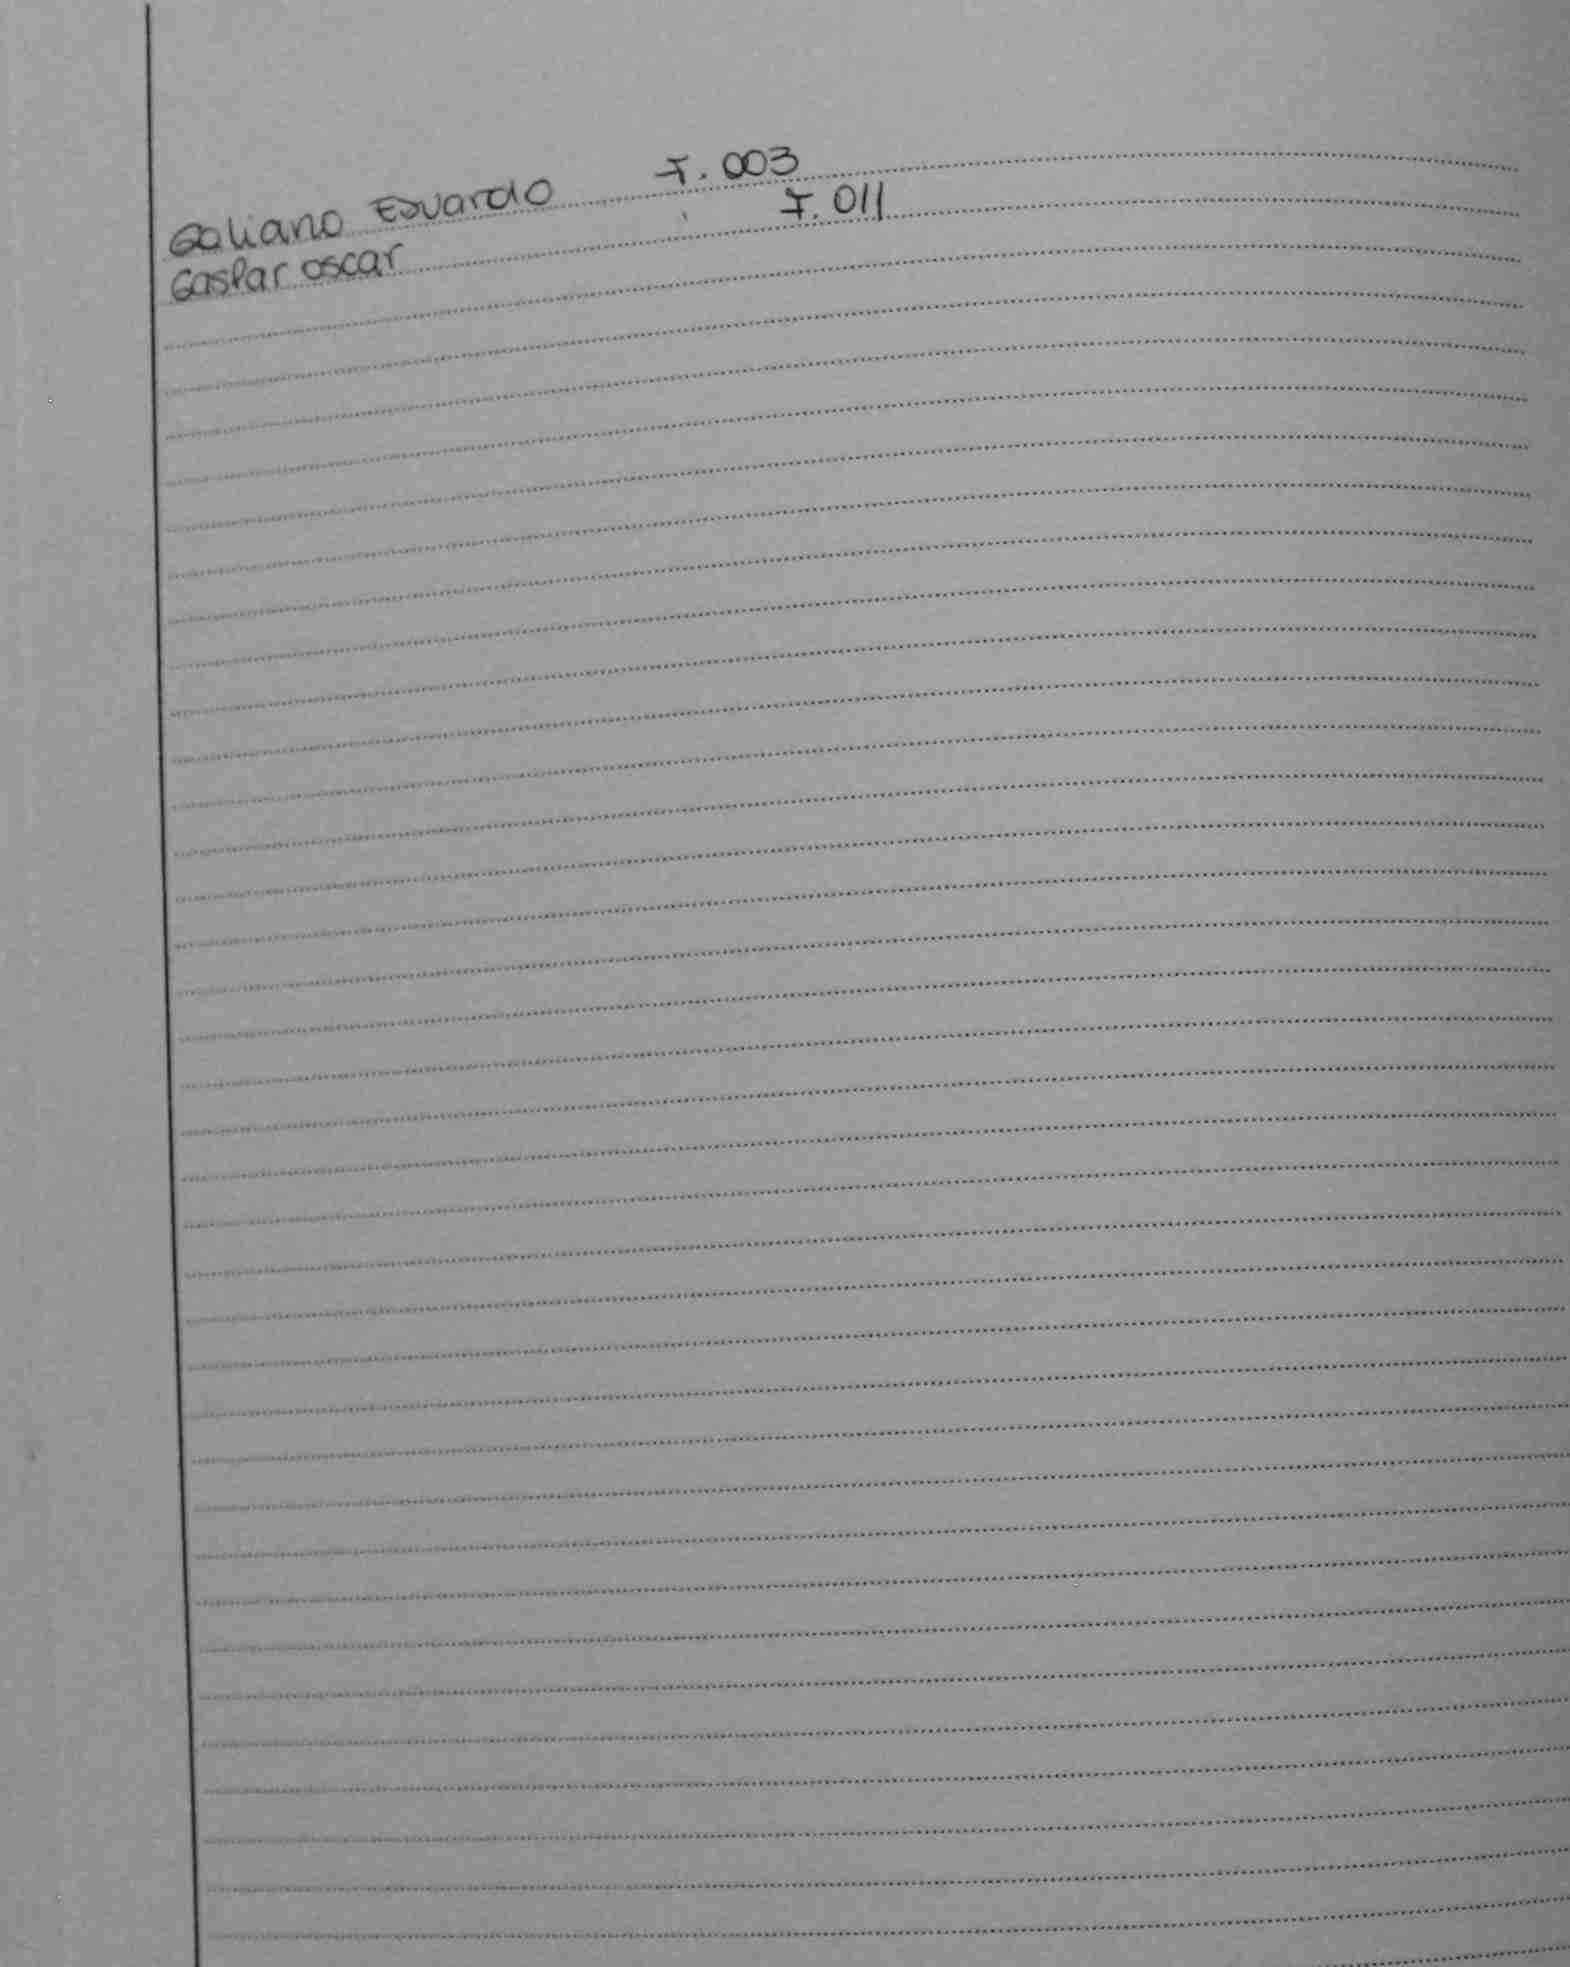 Galiano Eduardo F. 003
Gaspar oscar F. 011